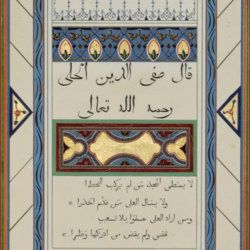 قال صفي الدين الحلي
رحمه الله تعالى
لا يمتطي المجد من لم يركب الخطرا
ولا ينال العلى من قدّم الحذرا *
ومن اراد العلى عفوا بلا تعب
قضى ولم يقض من ادراكها وطرا *